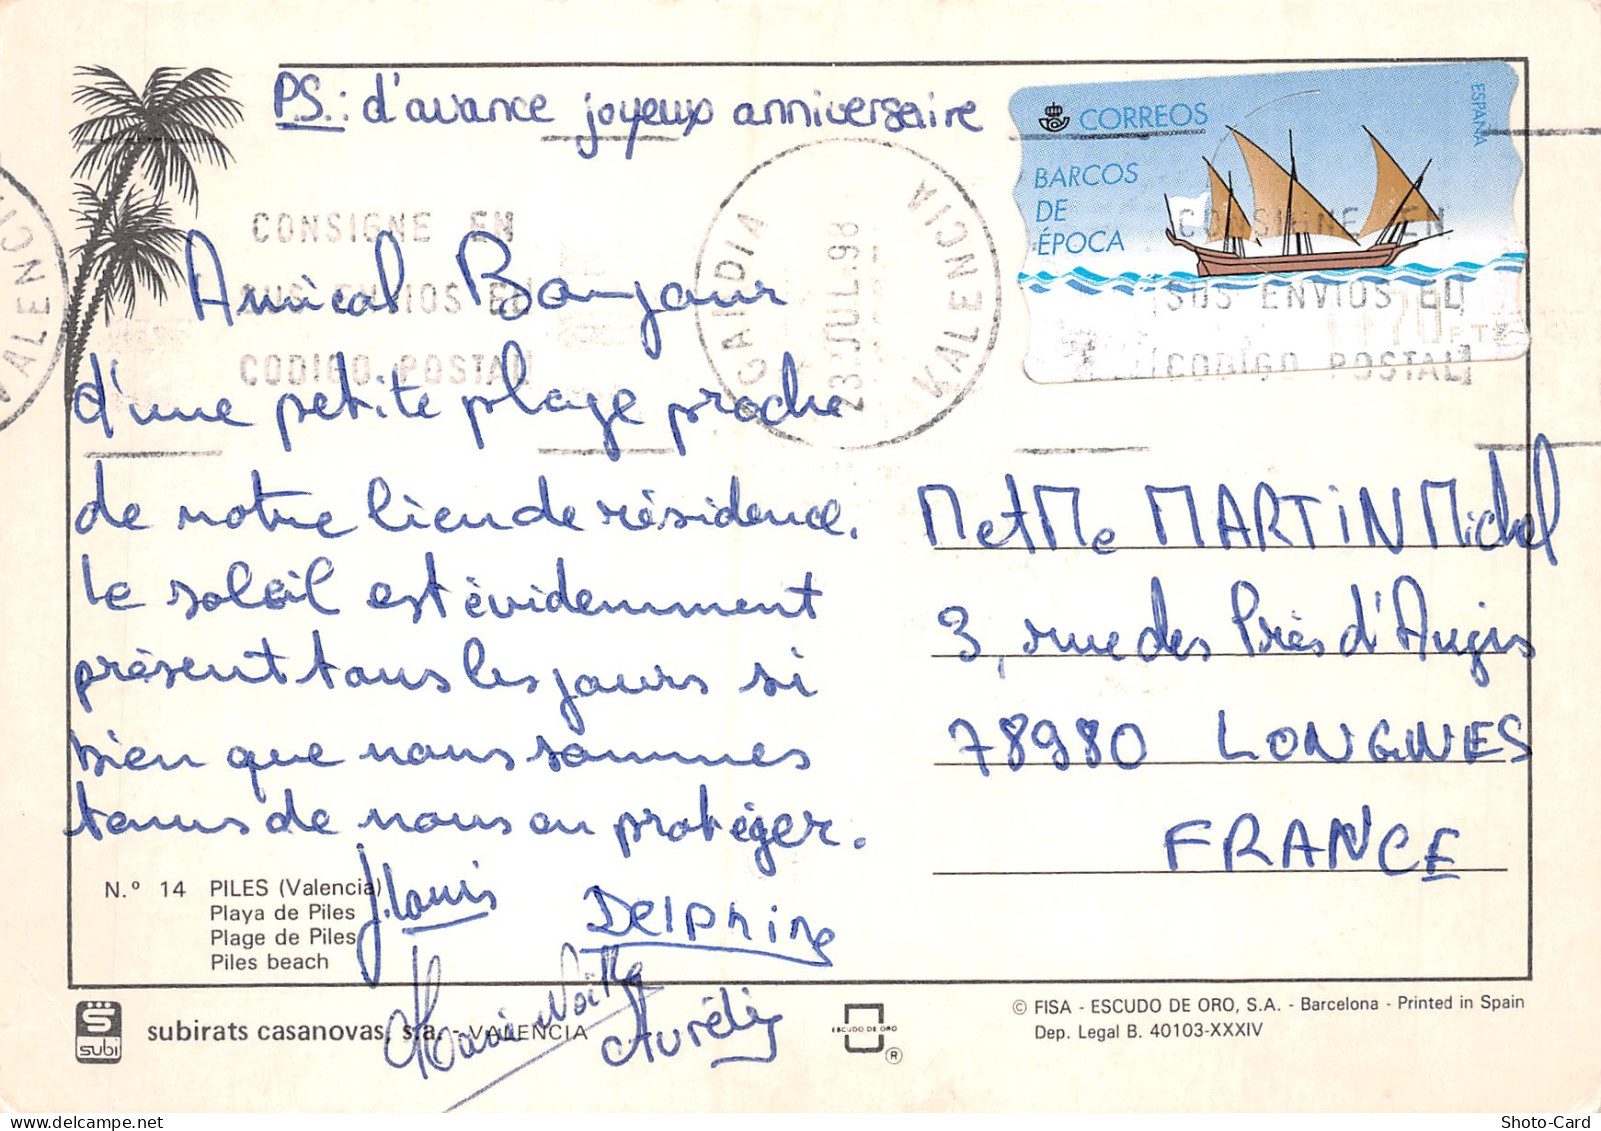 P.S.: d'avance joyeux anniversaire
CORREOS
ESPAÑA
BARCOS
DE
ÉPOCA
CONSIGNE EN
SUS ENVIOS EL
CODIGO POSTAL
GANDIA
23 JUL. 98
VALENCIA
CONSIGNE EN
SUS ENVIOS EL
CODIGO POSTAL
VALENCIA
Amical Bonjour
d'une petite plage proche
de notre lieu de résidence.
Le soleil est évidemment
présent tous les jours si
bien que nous sommes
tenus de nous en protéger.
J.Louis
DELphine
Marie Noëlle
Aurélie
M et Me MARTIN Michel
3, rue des Près d'Augis
78980 LONGNES
FRANCE
N.º 14 PILES (Valencia)
Playa de Piles
Plage de Piles
Piles beach
subi
subirats casanovas, s.a. - VALENCIA
ESCUDO DE ORO
®
© FISA - ESCUDO DE ORO, S.A. - Barcelona - Printed in Spain
Dep. Legal B. 40103-XXXIV
Shoto-Card